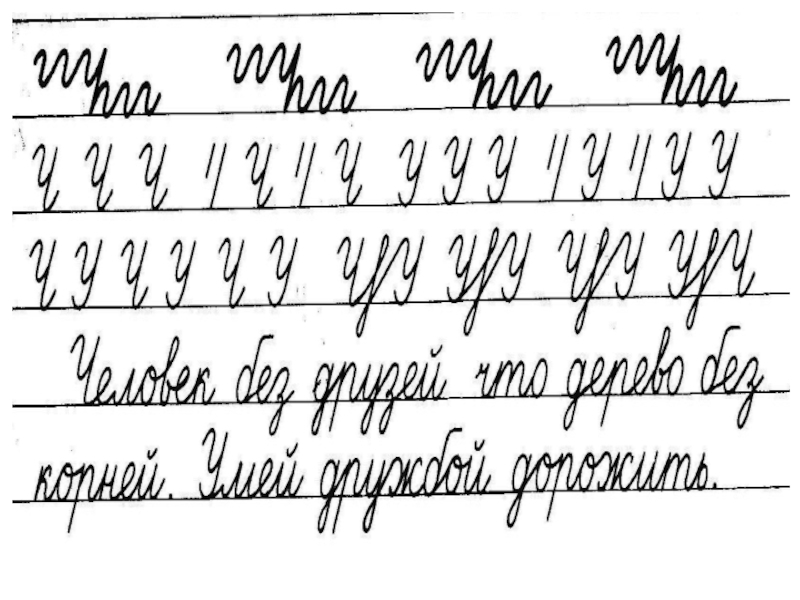 Ч Ч Ч // Ч // Ч У У У // У // У У
Ч У Ч У Ч У Ч∫У У∫У Ч∫У У∫Ч
Человек без друзей что дерево без
корней. Умей дружбой дорожить.